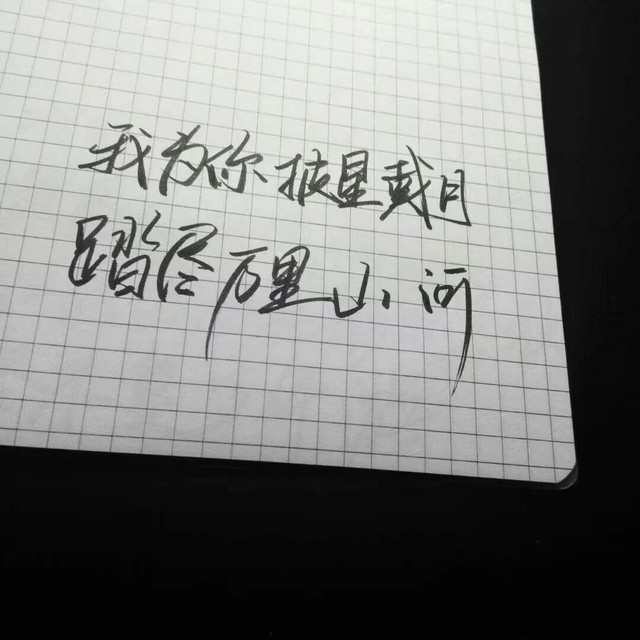 我为你披星戴月
踏尽万里山河